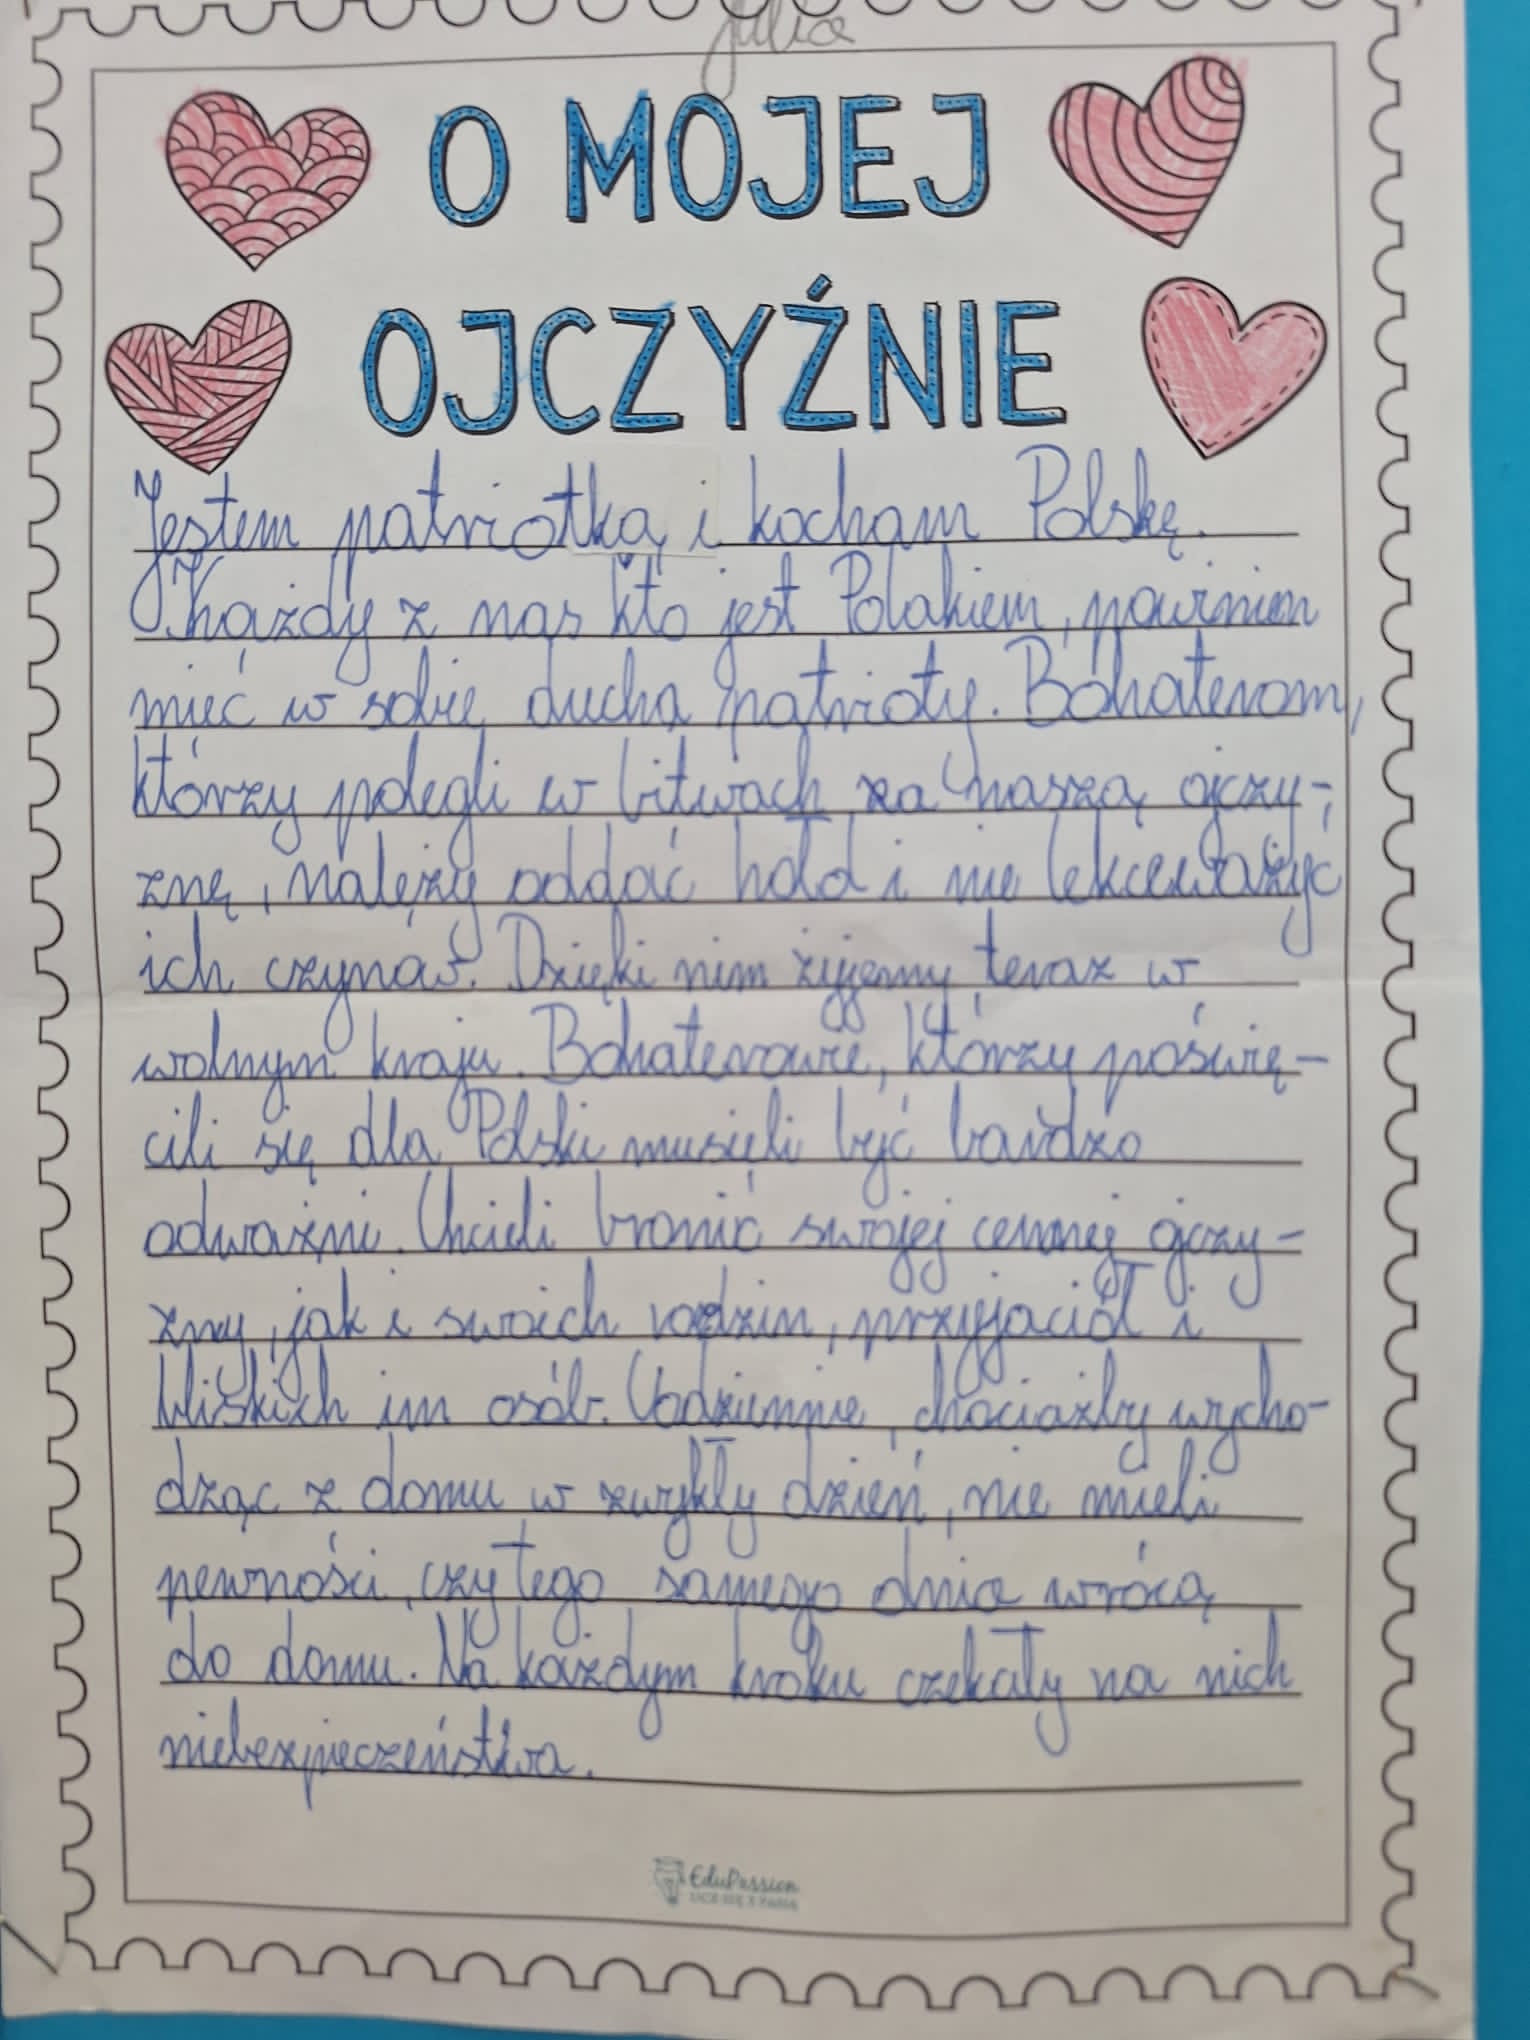 Julia
O MOJEJ
OJCZYŹNIE
Jestem patriotką i kocham Polskę.
Każdy z nas kto jest Polakiem, powinien
mieć w sobie ducha patrioty. Bohaterom,
którzy polegli w bitwach za naszą ojczy-
znę, należy oddać hołd i nie lekceważyć
ich czynów. Dzięki nim żyjemy teraz w
wolnym kraju. Bohaterowie, którzy poświę-
cili się dla Polski musieli być bardzo
odważni. Chcieli bronić swojej cennej ojczy-
zny, jak i swoich rodzin, przyjaciół i
bliskich im osób. Codziennie, chociażby wycho-
dząc z domu w zwykły dzień, nie mieli
pewności, czy tego samego dnia wrócą
do domu. Na każdym kroku czekały na nich
niebezpieczeństwa.
EduPassion
UCZĘ SIĘ Z PASJĄ